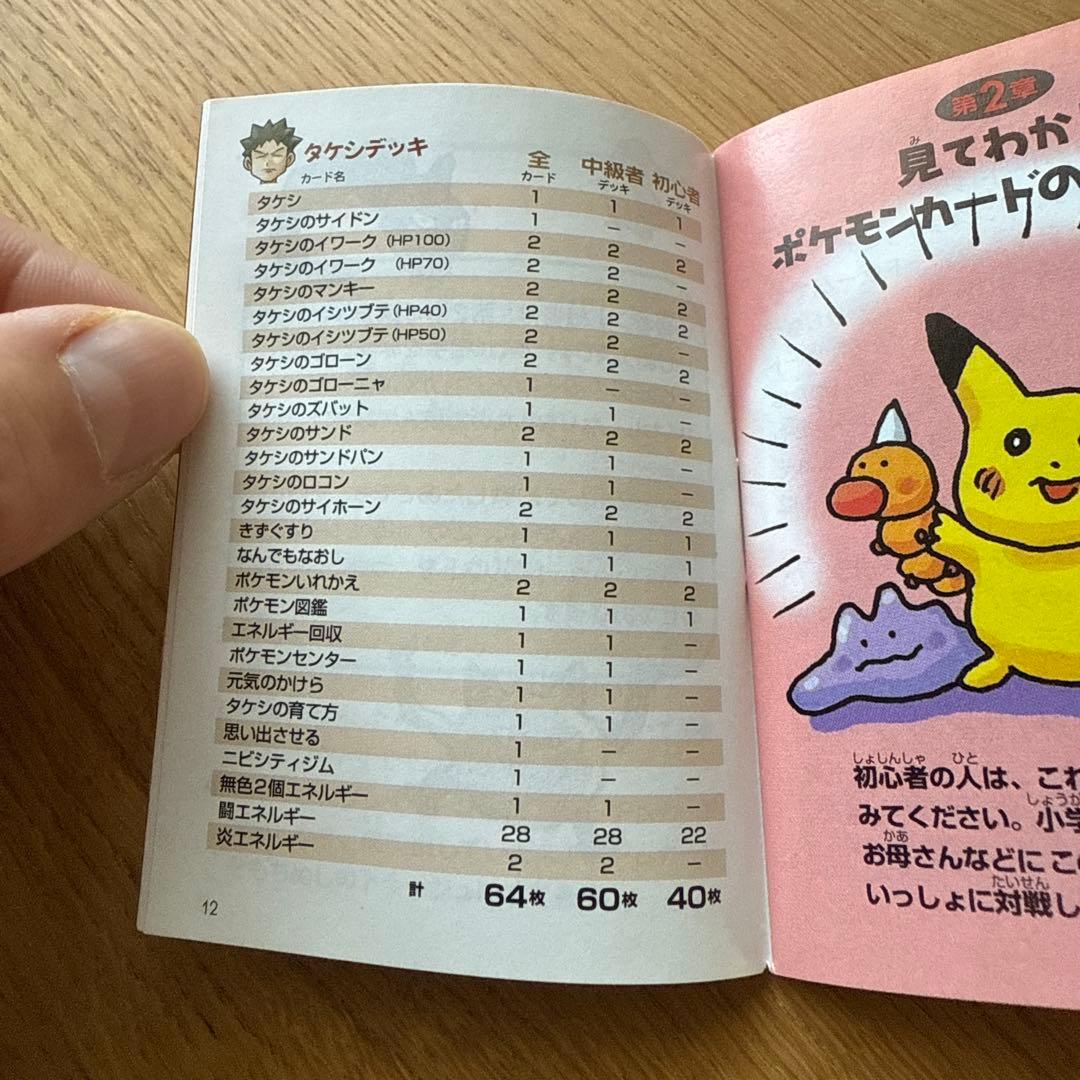 タケシデッキ
カード名 全カード 中級者デッキ 初心者デッキ
タケシ 1 1 1
タケシのサイドン 1 – –
タケシのイワーク（HP100） 2 2 2
タケシのイワーク （HP70） 2 2 –
タケシのマンキー 2 2 2
タケシのイシツブテ（HP40） 2 2 2
タケシのイシツブテ（HP50） 2 2 –
タケシのゴローン 2 2 2
タケシのゴローニャ 1 – –
タケシのズバット 1 1 –
タケシのサンド 2 2 2
タケシのサンドパン 1 1 –
タケシのロコン 1 1 –
タケシのサイホーン 2 2 2
きずぐすり 1 1 1
なんでもなおし 1 1 1
ポケモンいれかえ 2 2 2
ポケモン図鑑 1 1 1
エネルギー回収 1 1 –
ポケモンセンター 1 1 –
元気のかけら 1 1 –
タケシの育て方 1 1 –
思い出させる 1 – –
ニビシティジム 1 – –
無色2個エネルギー 1 1 –
闘エネルギー 28 28 22
炎エネルギー 2 2 –
計 64枚 60枚 40枚
12
第2章
み
見てわか
ポケモンカードの
しょしんしゃ ひと
初心者の人は、これ
しょうが
みてください。小学
かあ
お母さんなどにこの
たいせん
いっしょに対戦し